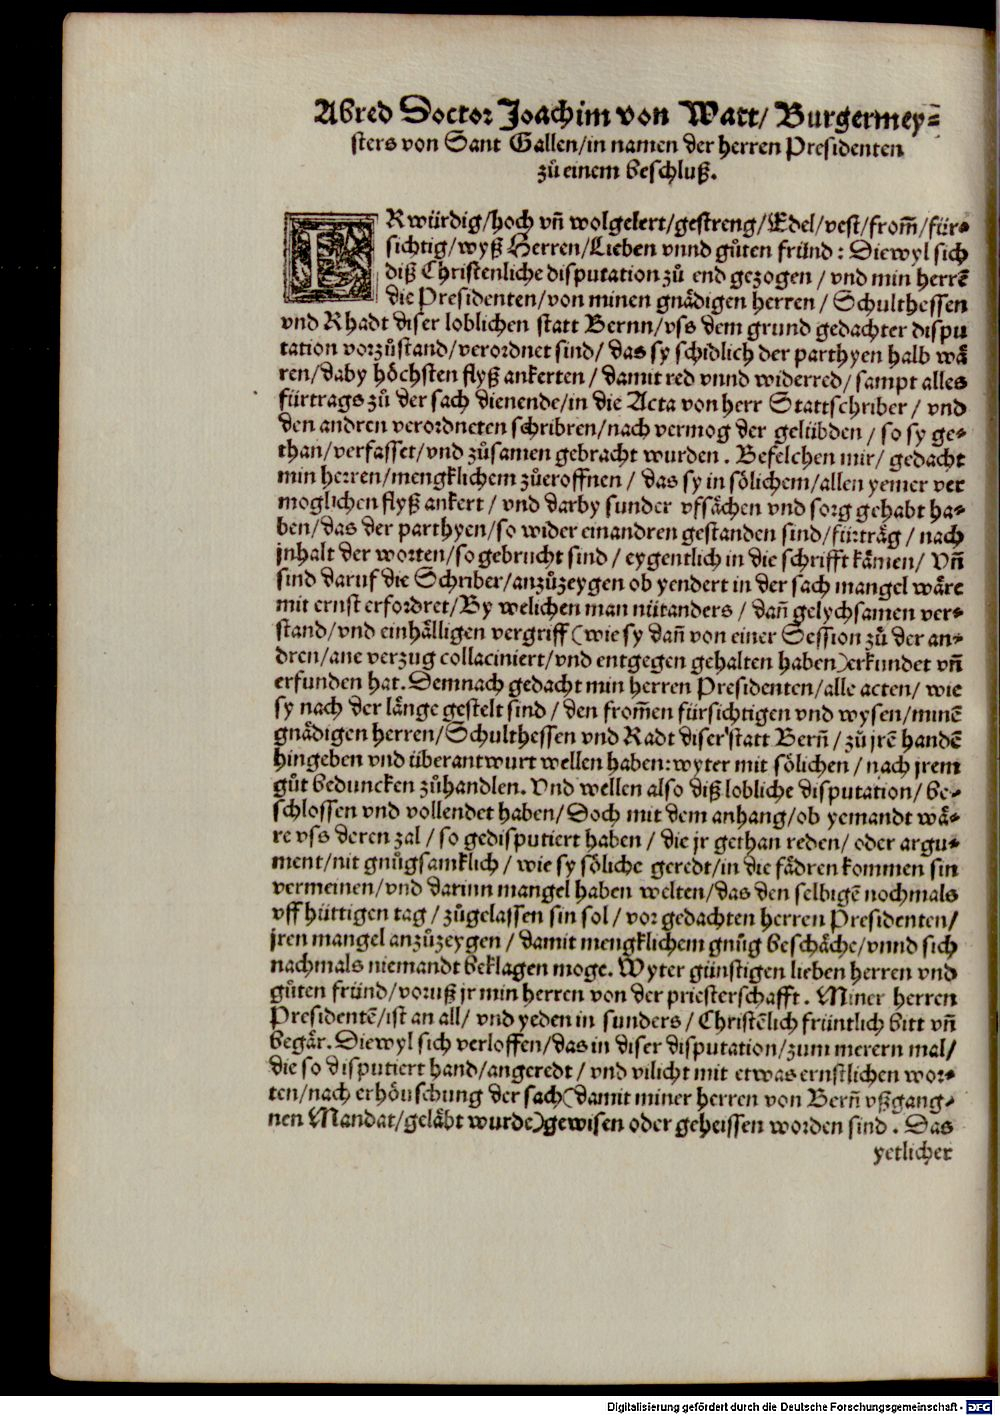 Abred Doctor Joachim von Watt/ Burgermey⸗
sters von Sant Gallen/in namen der herren Presidenten
zů einem beschluß.
ERwürdig/hoch vñ wolgelert/gestreng/Edel/vest/from̃/für⸗
sichtig/wyß Herren/Lieben vnnd gůten fründ: Diewyl sich
diß Christenliche disputation zů end gezogen / vnd min herrẽ
die Presidenten/von minen gnädigen herren / Schulthessen
vnd Rhadt diser loblichen statt Bernn/vss dem grund gedachter dispu
tation vorzůstand/verordnet sind/ das sy schidlich der parthyen halb wä
ren/daby höchsten flyß ankerten / damit red vnnd widerred/ sampt alles
fürtrags zů der sach dienende/in die Acta von herr Stattschriber / vnd
den andren verordneten schribren/nach vermog der gelübden / so sy ge⸗
than/verfasset/vnd zůsamen gebracht wurden . Befelchen mir/ gedacht
min herren/mengklichem zůeroffnen / das sy in sölichem/allen yemer ver
moglichen flyß ankert / vnd darby sunder vfsächen vnd sorg gehabt ha⸗
ben/das der parthyen/so wider einandren gestanden sind/fürträg / nach
jnhalt der worten/so gebrucht sind / eygentlich in die schrifft kämen/ Vñ
sind daruf die Schriber/anzůzeygen ob yendert in der sach mangel wäre
mit ernst erfordret/By welichen man nütanders / dañ gelychsamen ver⸗
stand/vnd einhälligen vergriff (wie sy dañ von einer Session zů der an⸗
dren/ane verzug collaciniert/vnd entgegen gehalten haben)erkundet vñ
erfunden hat. Demnach gedacht min herren Presidenten/alle acten/ wie
sy nach der länge gestelt sind / den from̃en fürsichtigen vnd wysen/minẽ
gnädigen herren/Schulthessen vnd Radt diser statt Berñ / zů jrẽ handẽ
hingeben vnd überantwurt wellen haben: wyter mit sölichen / nach jrem
gůt beduncken zůhandlen. Vnd wellen also diß lobliche disputation/ be⸗
schlossen vnd vollendet haben/Doch mit dem anhang/ob yemandt wä⸗
re vss deren zal / so gedisputiert haben / die jr gethan reden/ oder argu⸗
ment/nit gnůgsamklich / wie sy söliche geredt/in die fädren kommen sin
vermeinen/vnd darinn mangel haben welten/das den selbigẽ nochmals
vff hüttigen tag / zůgelassen sin sol / vor gedachten herren Presidenten/
jren mangel anzůzeygen / damit mengklichem gnůg beschäche/vnnd sich
nachmals niemandt beklagen moge. Wyter günstigen lieben herren vnd
gůten fründ/voruß jr min herren von der priesterschafft . Miner herren
Presidentẽ/ist an all/ vnd yeden in sunders / Christẽlich früntlich bitt vñ
begär. Diewyl sich verloffen/das in diser disputation/zum merern mal/
die so disputiert hand/angeredt / vnd vilicht mit etwas ernstlichen wor⸗
ten/nach erhöuschung der sach(damit miner herren von Berñ vßgang⸗
nen Mandat/geläbt wurde)gewisen oder geheissen worden sind . Das
yetlicher
Digitalisierung gefördert durch die Deutsche Forschungsgemeinschaft - DFG